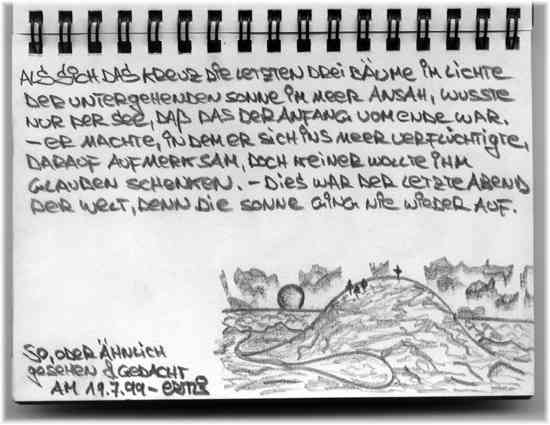 ALS SICH DAS KREUZ DIE LETZTEN DREI BÄUME IM LICHTE
DER UNTERGEHENDEN SONNE IM MEER ANSAH, WUSSTE
NUR DER SEE, DAß DAS DER ANFANG VOM ENDE WAR.
– ER MACHTE, INDEM ER SICH INS MEER VERFLÜCHTIGTE,
DARAUF AUFMERKSAM, DOCH KEINER WOLLTE IHM
GLAUBEN SCHENKEN. – DIES WAR DER LETZTE ABEND
DER WELT, DENN DIE SONNE GING NIE WIEDER AUF.
SO, ODER ÄHNLICH
gesehen & GEDACHT
AM 19.7.99 –